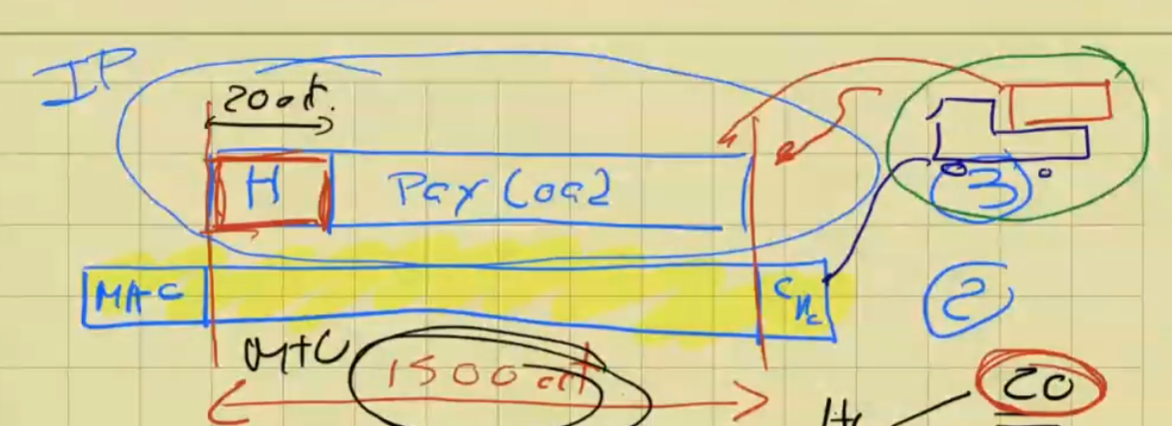 IP
20 oct.
H Payload
3
MAC CRC
2
MTU
1500 oct
20